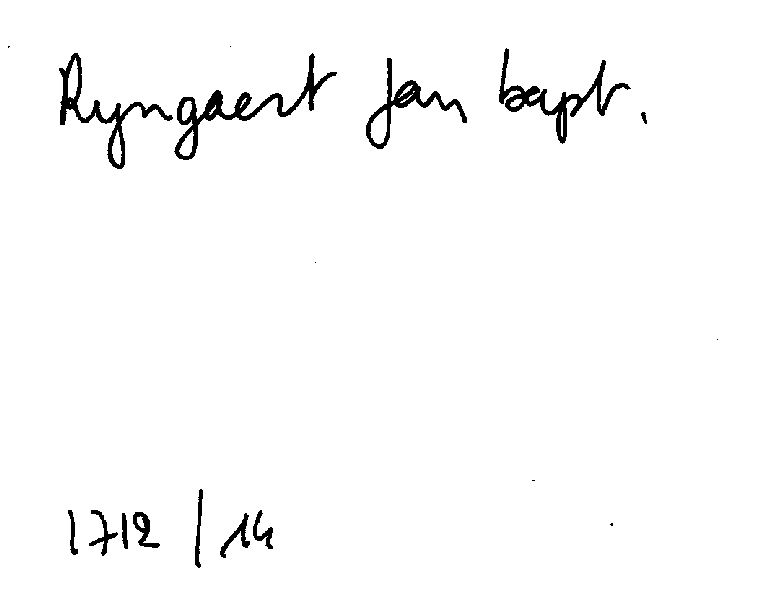 Ryngaert Jan bapt.
1712 / 14